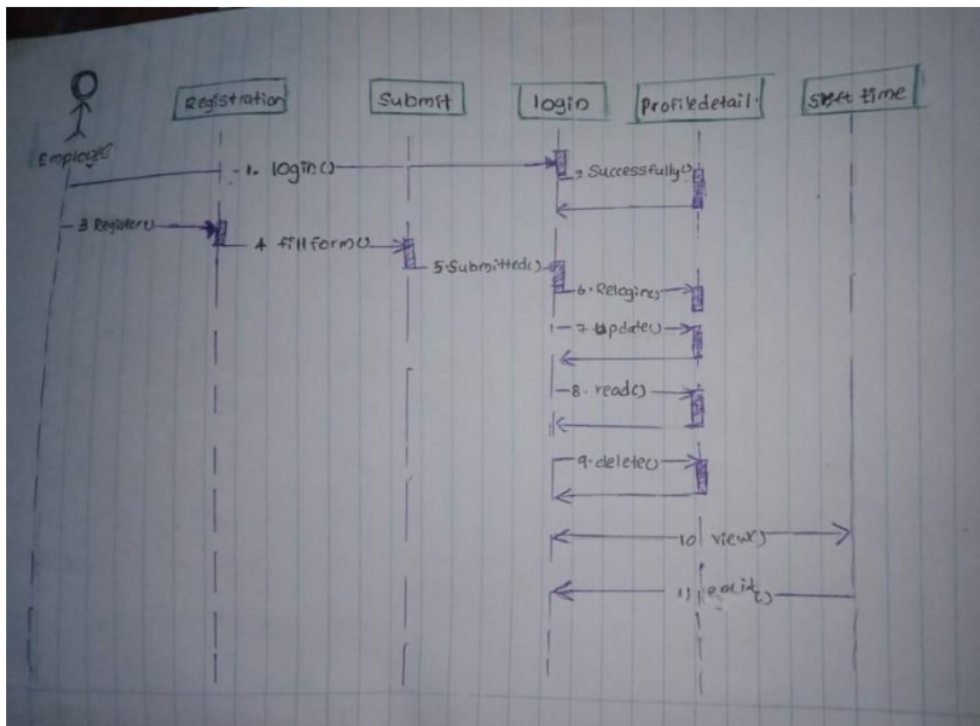 Registration
Submit
login
Profiledetail.
time
Employee
1. login()
2 Successfully()
3 Register()
4 fillform()
5.Submitted()
6. Relogin()
7. update()
8. read()
9.delete()
10 view()
11